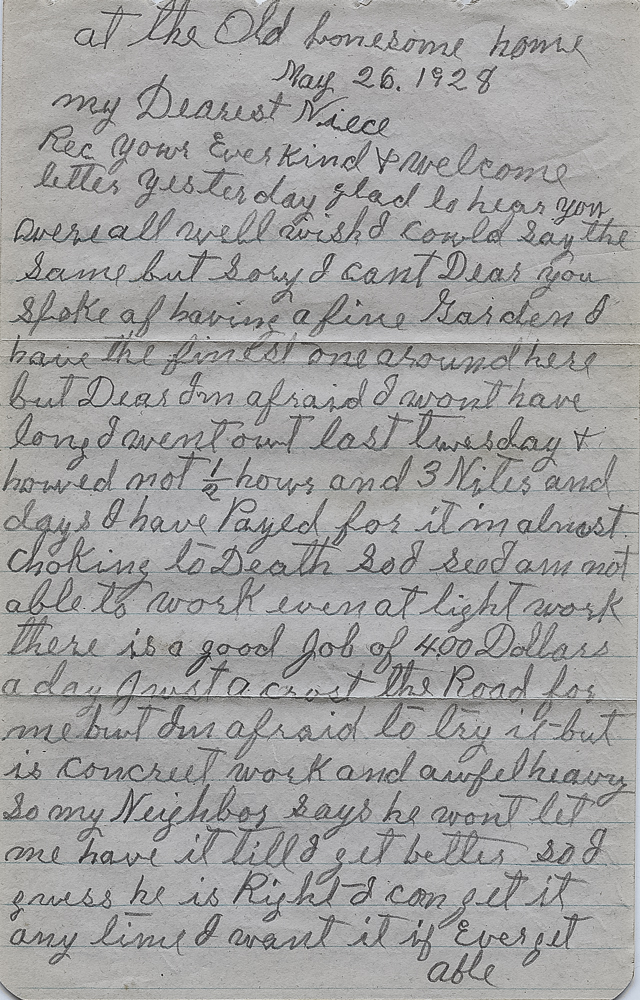 at the Old Lonesome home
May 26. 1928
my Dearest Niece
Rec your Ever Kind & welcome
letter yesterday glad to hear you
were all well wish I could say the
same but sory I cant Dear you
spoke of having a fine Garden I
have the finest one around here
but Dear Im afraid I wont have
long I went out last tuesday &
howed not ½ hour and 3 Nites and
days I have Payed for it in almost
choking to Death so I see I am not
able to work even at light work
there is a good Job of 4.00 Dollars
a day Just acrost the Road for
me but Im afraid to try it but
is concreet work and awfel heavy
so my Neighbor says he wont let
me have it till I get better so I
guess he is Right I can get it
any time I want it if Ever get
able